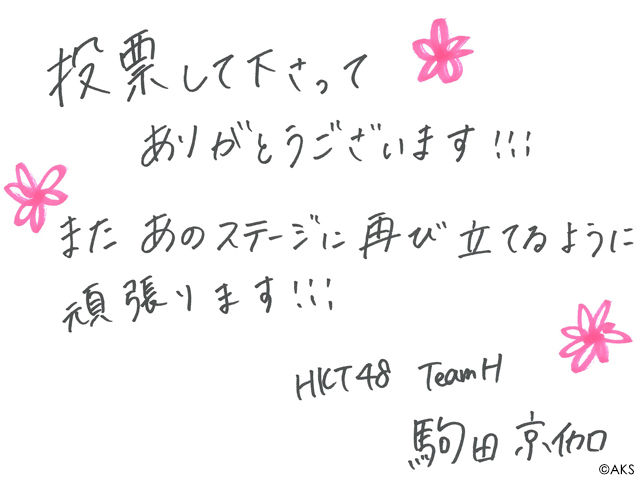 投票して下さって
ありがとうございます!!!
また あのステージに再び立てるように
頑張ります!!!
HKT48 TeamH
駒田京伽
©AKS